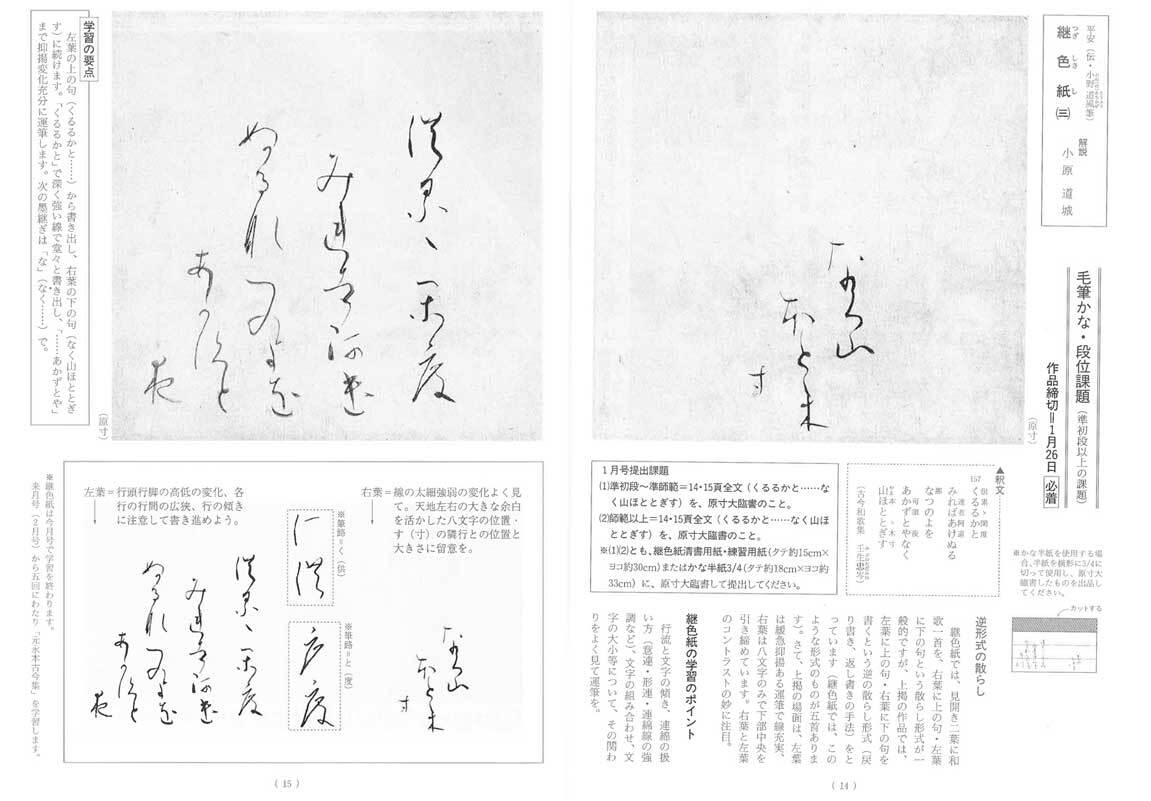 平安（伝・小野道風筆）
継色紙㈢
つぎしきし
解説
小原道城
毛筆かな・段位課題（準初段以上の課題）
作品締切＝1月26日 必着
（原寸）
▲釈文
157
くるるかと
みればあけぬる
なつのよを
あかずとやなく
山ほととぎす
（古今和歌集 壬生忠岑）
1月号提出課題
(1)準初段〜準師範＝14・15頁全文（くるるかと……な
く山ほととぎす）を、原寸大臨書のこと。
(2)師範以上＝14・15頁全文（くるるかと……なく山ほ
ととぎす）を、原寸大臨書のこと。
※(1)(2)とも、継色紙清書用紙・練習用紙（タテ約15cm×
ヨコ約30cm）またはかな半紙3/4（タテ約18cm×ヨコ約
33cm）に、原寸大臨書して提出してください。
※かな半紙を使用する場
合、半紙を横形に3/4に
切って使用し、原寸大
臨書したものを出品し
てください。
カットする
逆形式の散らし
継色紙では、見開き二葉に和
歌一首を、右葉に上の句・左葉
に下の句という散らし形式が一
般的ですが、上掲の作品では、
左葉に上の句・右葉に下の句を
書くという逆の散らし形式（戻
り書き、返し書きの手法）をと
っています（継色紙では、この
ような形式のものが五首ありま
す）。さて、上掲の場面は、左葉
は緩急抑揚ある運筆で線充実、
右葉は八文字のみで下部中央を
引き締めています。右葉と左葉
のコントラストの妙に注目。
継色紙の学習のポイント
行流と文字の傾き、連綿の扱
い方（意連・形連・連綿線の強
調など）、文字の組み合わせ、文
字の大小等について、その関わ
りをよく見て運筆を。
（14）
学習の要点
左葉の上の句（くるるかと……）から書き出し、右葉の下の句（なく山ほととぎ
す）に続けます。「くるるかと」で深く強い線で堂々と書き出し、「……あかずとや」
まで抑揚変化充分に運筆します。次の墨継ぎは「な」（なく……）で。
（原寸）
右葉＝線の太細強弱の変化よく見
て。天地左右の大きな余白
を活かした八文字の位置・
す（寸）の隣行との位置と
大きさに留意を。
※筆路＝く（供）
※筆路＝と（度）
左葉＝行頭行脚の高低の変化、各
行の行間の広狭、行の傾き
に注意して書き進めよう。
※継色紙は今月号で学習を終わります。
来月号（2月号）から五回にわたり「元永本古今集」を学習します。
（15）